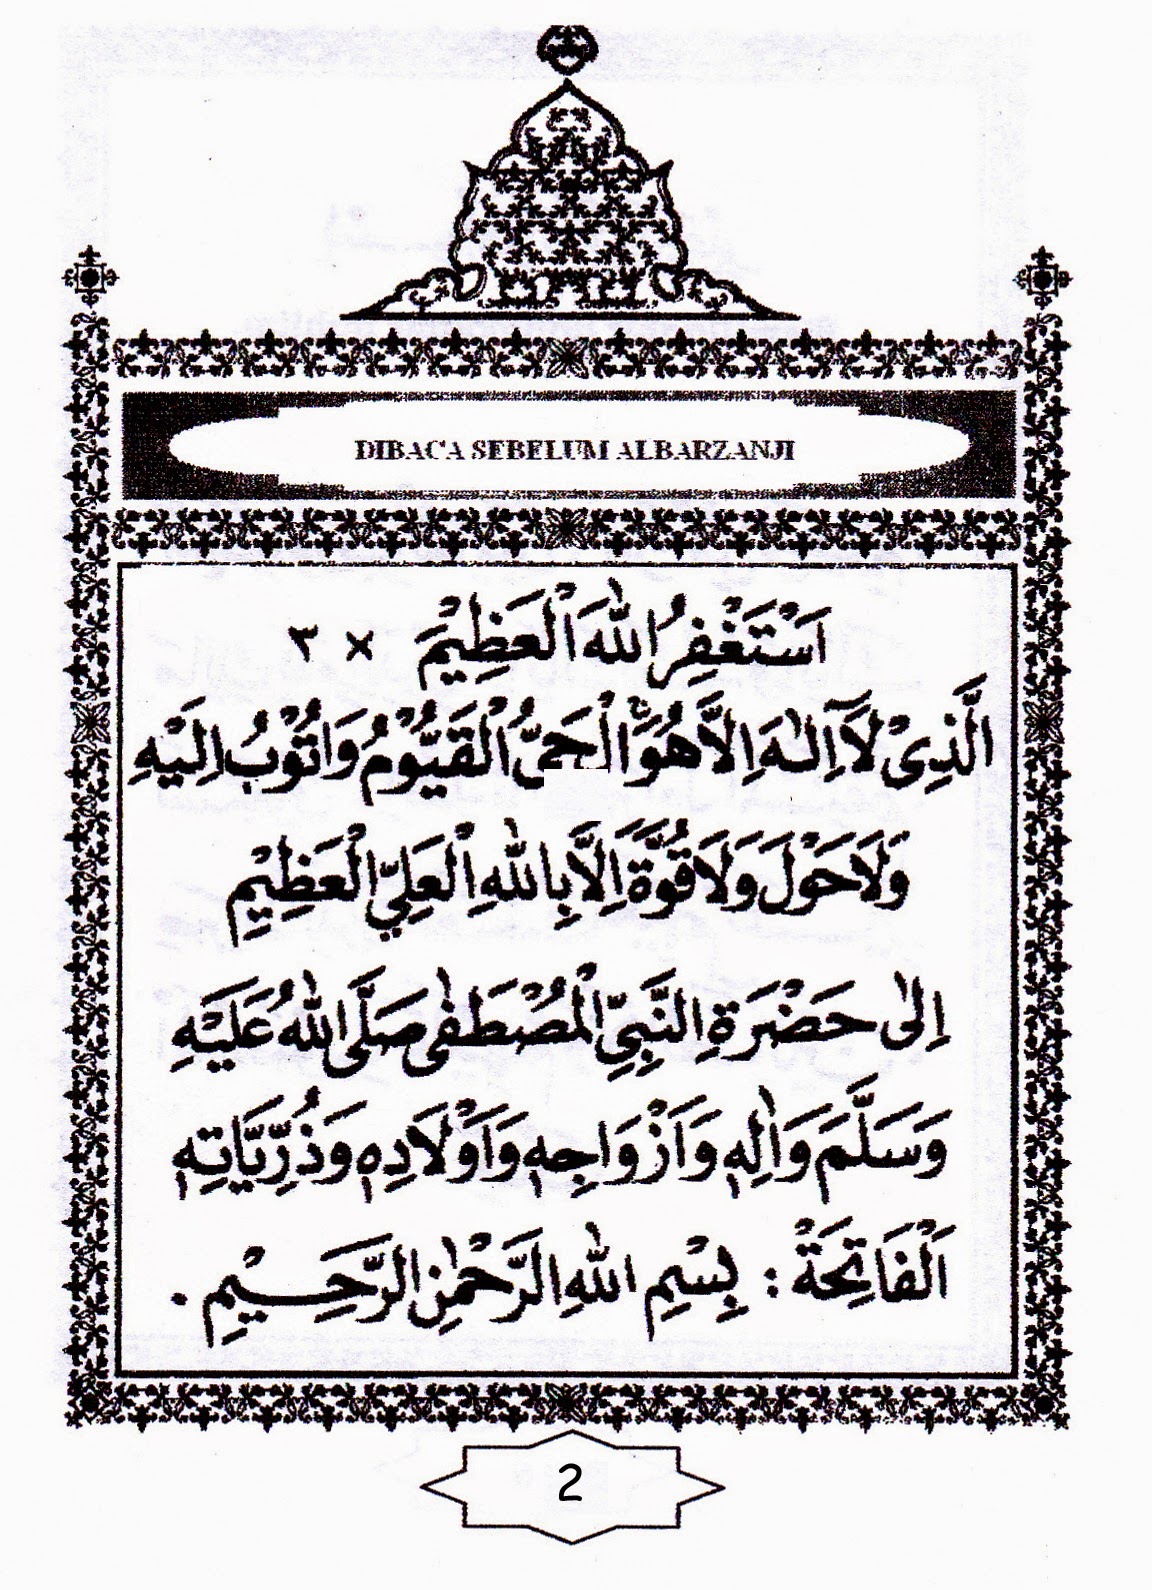 DIBACA SEBELUM ALBARZANJI
اَسْتَغْفِرُ اللهَ الْعَظِيْمَ × ٣
الَّذِىْ لَآ اِلٰهَ اِلَّا هُوَ الْحَىُّ الْقَيُّوْمُ وَاَتُوْبُ اِلَيْهِ
وَلَا حَوْلَ وَلَا قُوَّةَ اِلَّا بِاللهِ الْعَلِيِّ الْعَظِيْمِ
اِلٰى حَضْرَةِ النَّبِيِّ الْمُصْطَفٰى صَلَّى اللهُ عَلَيْهِ
وَسَلَّمَ وَاٰلِهٖ وَاَزْوَاجِهٖ وَاَوْلَادِهٖ وَذُرِّيَّاتِهٖ
اَلْفَاتِحَةْ : بِسْمِ اللهِ الرَّحْمٰنِ الرَّحِيْمِ .
2